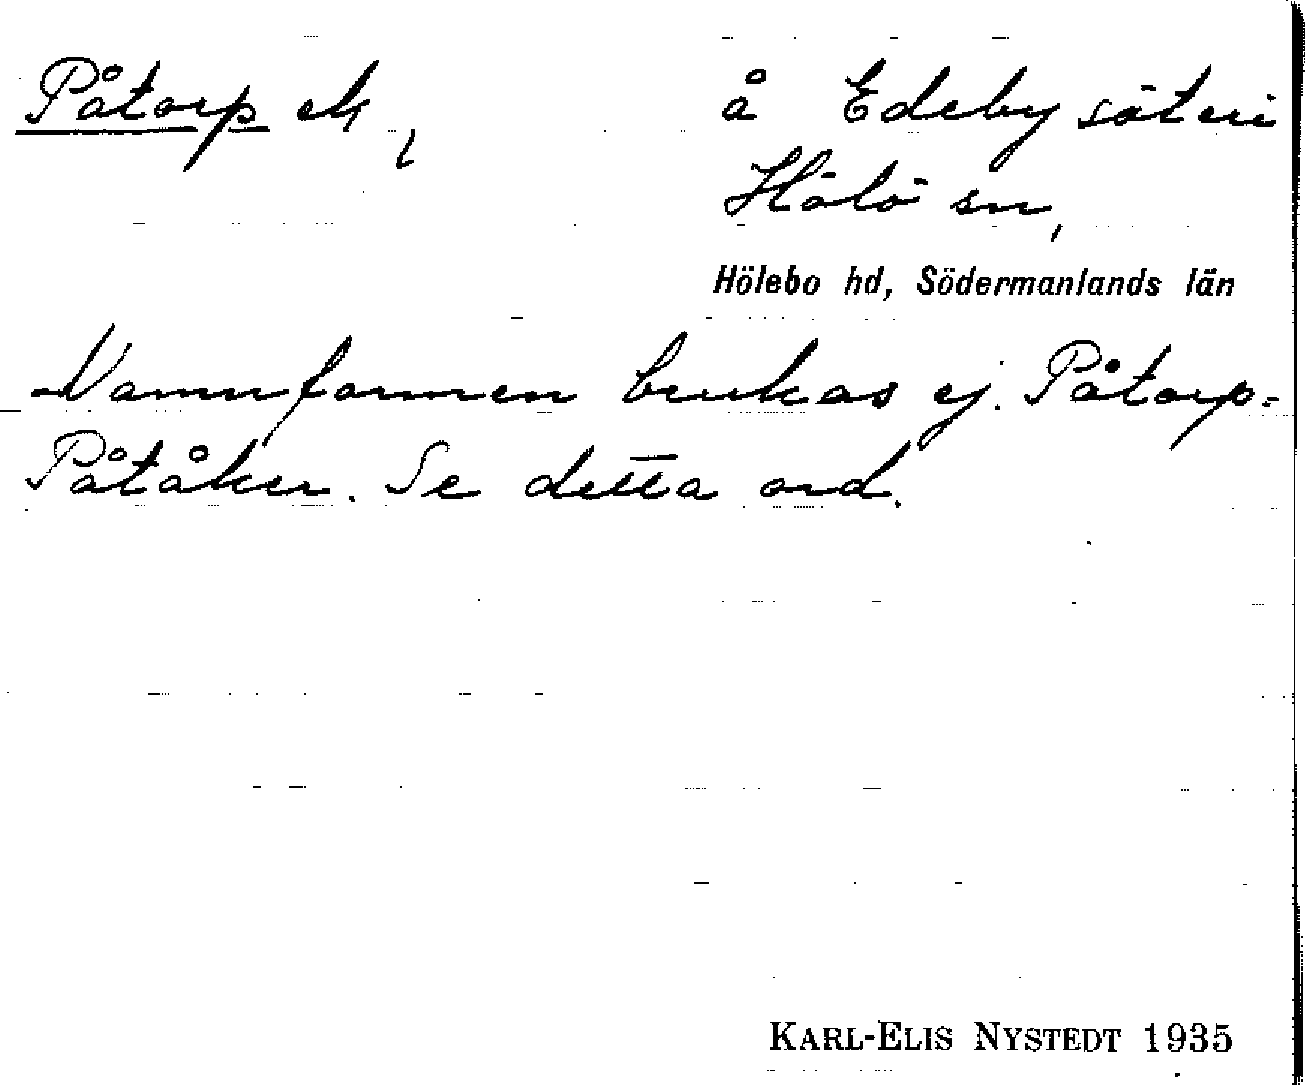 Påtorp ek, å Edeby säteri
Hölö sn,
Hölebo hd, Södermanlands län
Namnformen brukas ej. Påtorp=
Påtåker. Se detta ord.
KARL-ELIS NYSTEDT 1935